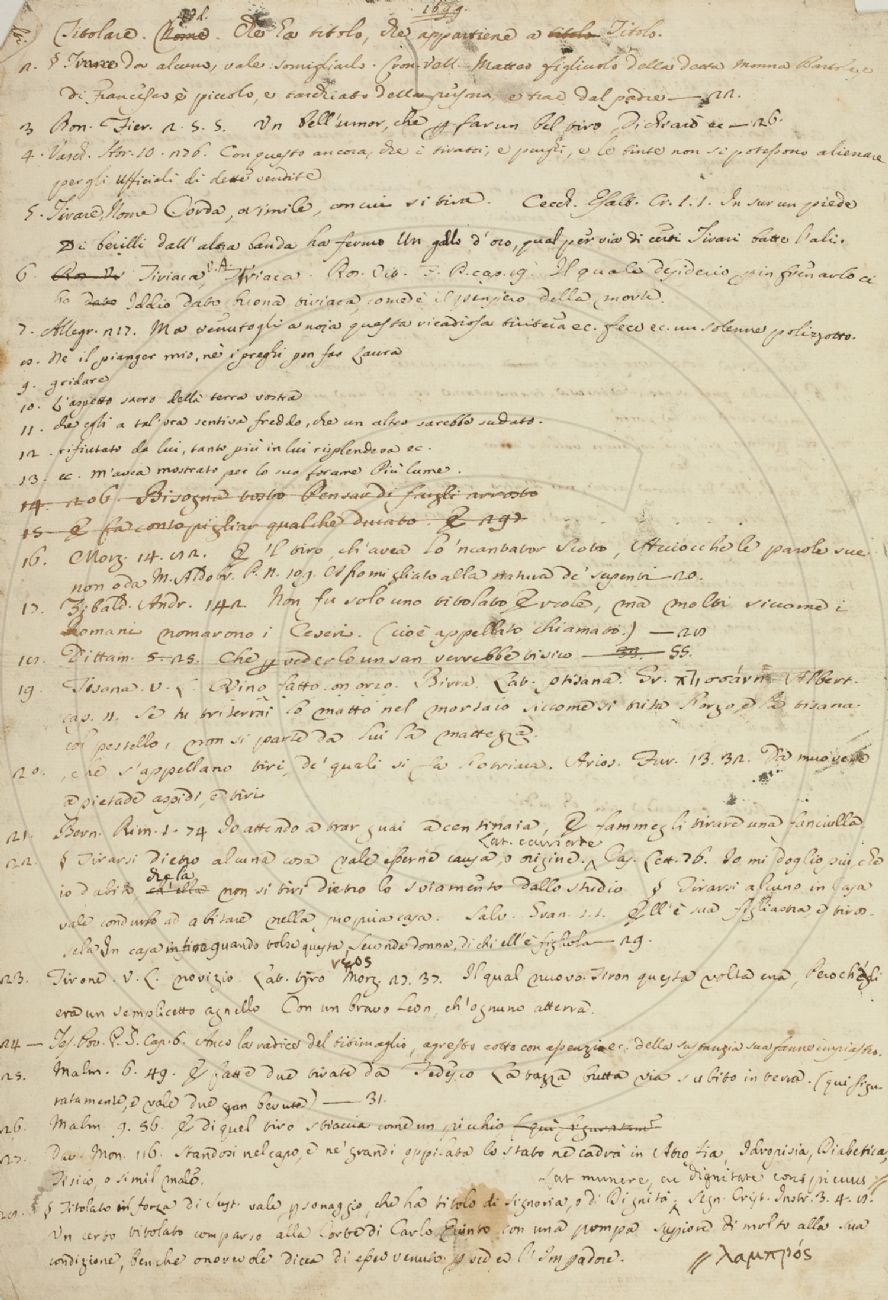 1699.
add.
Titolare. Nome. Che ha titolo, che appartiene a titolo Titolo.
2. § Tirare da alcuno, vale somigliarlo. Cron. Vell. Matteo figliuolo della detta Monna
di Francesco è piccolo, e tarchiato della persona, e trae dal padre — 22.
3 Bon. Fier. 2. 5. 5. Un bell'umor, che far un bel tiro, Dichiarò ec — 26.
4. Stor. 10. 176. Con questo ancora, che i tiratoi, e purghi, e le tinte non si potessono alienare
per gli Ufficiali di dette vendite
5. Tirare, Nome Corda, o simile, con cui si tira. Cecch. Esalt. Cr. 1. 1. In sur un piede
Di berilli dall'altra banda ha fermo Un gallo d'oro, qual per via di certi Tirari batte l'ali.
6. Tiriaca, v. A. Triaca. cap. 19. Il quale desiderio per infrenarlo ci
ha dato Iddio dato buona tiriaca, come è il pensiero della morte.
7. Allegr. 217. Ma venutogli a noja questa ricadiosa ec. fece ec. un solenne polizzotto.
8. Nè il pianger mio, nè i preghi pon far Laura
9. gridare
10. L'aspetto sacro della terra vostra
11. che egli a tal'ora sentiva freddo, che un altro sarebbe sudato.
12. rifiutato da lui, tanto più in lui risplendeva ec.
13. ec. m'avea mostrato per lo suo forame Più lume.
14. 206. Bisogna tosto Pensar di fargli arrosto
15 E fa conto pigliar qualche ducato. E 291
16. Morg. 14. 82. E 'l tiro, ch'avea lo 'ncantator Scotto, Acciocchè le parole sue
non oda M. Aldobr. P. N. 109. Assomigliato alla natura de' serpenti — 20.
17. Zibald. Andr. 142. Non fu solo uno titolato Ercole, ma molti siccome i
Romani nomarono i Ceseri. (cioè appellato chiamato.) — 28
18. Dittam. 5. 25. Che vederlo un san verrebbe tisico — 55.
19. Tisana. V. L. Vino fatto con orzo. Birra. Lat. ptisana. Gr. Albert.
cap. 11. Se tu triterrai lo matto nel mortaio siccome si trita l'orzo, e la tisana
col pestello, non si parte da lui la mattezza.
20. , che s'appellano tiri, de' quali si fa l'otriaca. Arios. Fur. 13. 32. Da muovere
a pietade aspidi, e tiri
21. Bern. Rim. 1. 74 Io attendo a trar guai a centinaia, E fammegli tirare una fanciulla
22. § Tirarsi dietro alcuna cosa vale esserne causa, o origine. Cas. Lett. 76. Io mi doglio più che
Lat.
io dubito che la ch'ella non si tiri dietro lo sviamento dallo studio. § Tirarsi alcuno in Casa
vale condurlo ad abitare nella propria casa. Salv. Gran. 1. 1. Ell'è sua figliastra e tiros-
sela In casa infino quando tolse questa Seconda donna, di chi ell'è figliola — 29.
23. Tirone. V. L. novizio. Lat. tyro Morg. 27. 37. Il qual nuovo Tiron questa volta era, Perocch'egli
era un semplicetto agnello Con un bravo Leon, ch'ognuno atterra.
24 — Tes. Pov. P. S. Cap. 6. Anco la radice del titimaglio, agresto cotto con assenzio ec. della sustanzia sua fanne impiastro.
25. Malm. 6. 49. E fatte due tirate da Tedesco La tazza butta via subito in terra. (qui figu-
ratamente, e vale due gran bevute) — 31.
26. Malm. 9. 56. E di quel tiro stiaccia come un picchio (qui figuratam.
27. Dav. Mon. 116. Standosi nel capo, e ne' grandi oppilata lo stato ne cadrà in Atrofia, Idropisia, Diabetica,
Tisico, o simil male. Lat. munere, ac dignitate conspicuus
28. § Titolato in forza di Sust. vale personaggio, che ha titolo di Signoria, o di Dignità. Segn. Crist. Instr. 3. 4. 8.
Un certo titolato comparso alla Corte di Carlo Quinto con una pompa superiore di molto alla sua
condizione, benche onorevole dicea di esser venuto veder l'Imperadore. λαμπρός